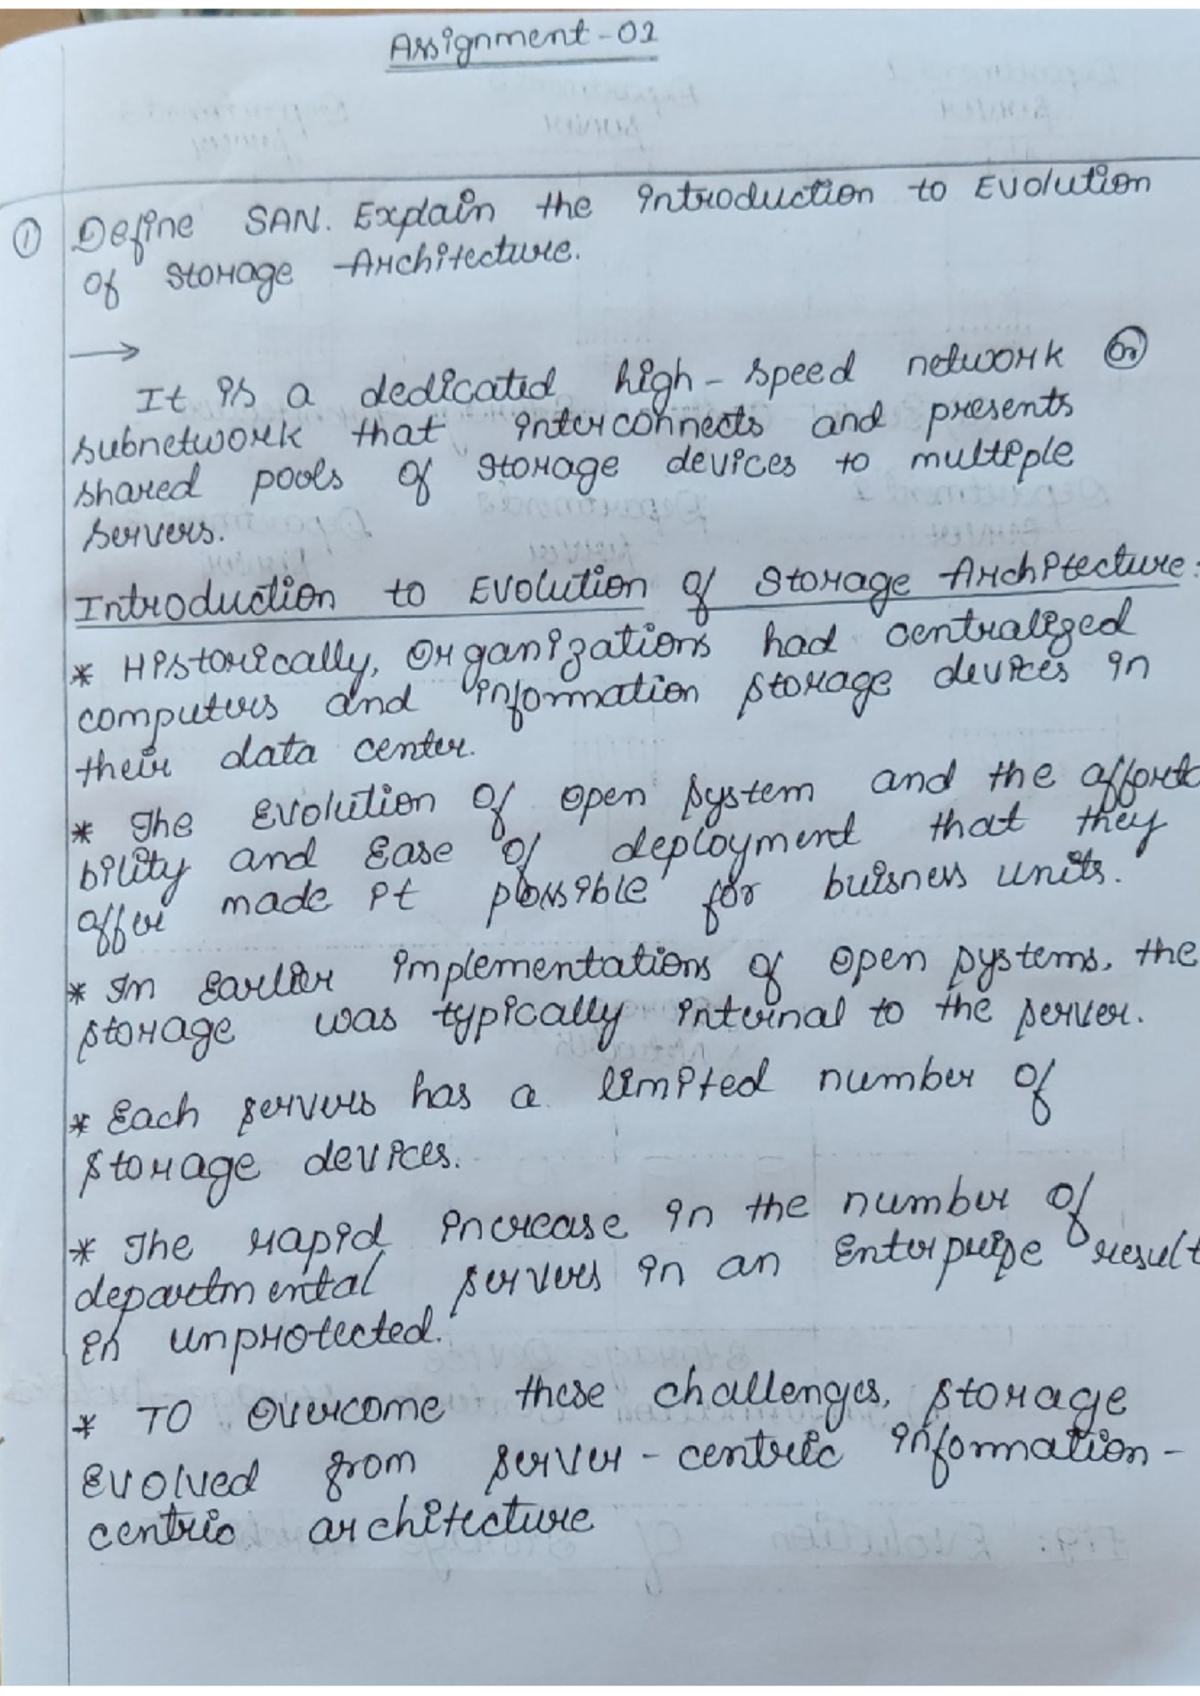 Assignment-02
① Define SAN. Explain the introduction to Evolution
of Storage Architecture.
→
It is a dedicated high-speed network (or)
subnetwork that interconnects and presents
shared pools of storage devices to multiple
servers.
Introduction to Evolution of Storage Architecture:
* Historically, Organizations had centralized
computers and information storage devices in
their data center.
* The Evolution of open system and the afforda
bility and Ease of deployment that they
offer made it possible for buisness units.
* In Earlier implementations of open systems, the
storage was typically internal to the server.
* Each servers has a limited number of
storage devices.
* The rapid increase in the number of
departmental servers in an Enterprise result
in unprotected.
* To Overcome these challenges, storage
Evolved from server-centric information-
centric architecture